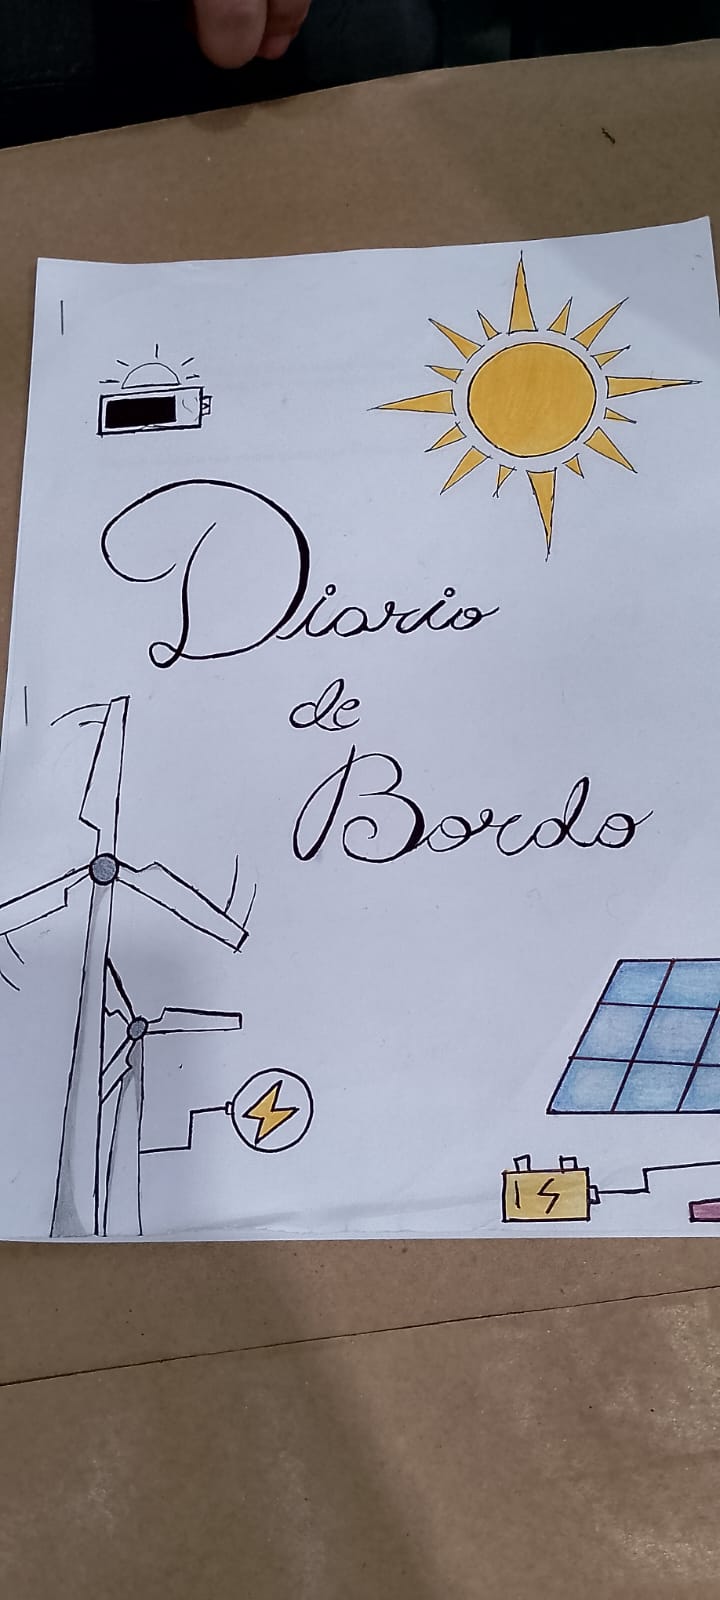 Diario
de
Bordo